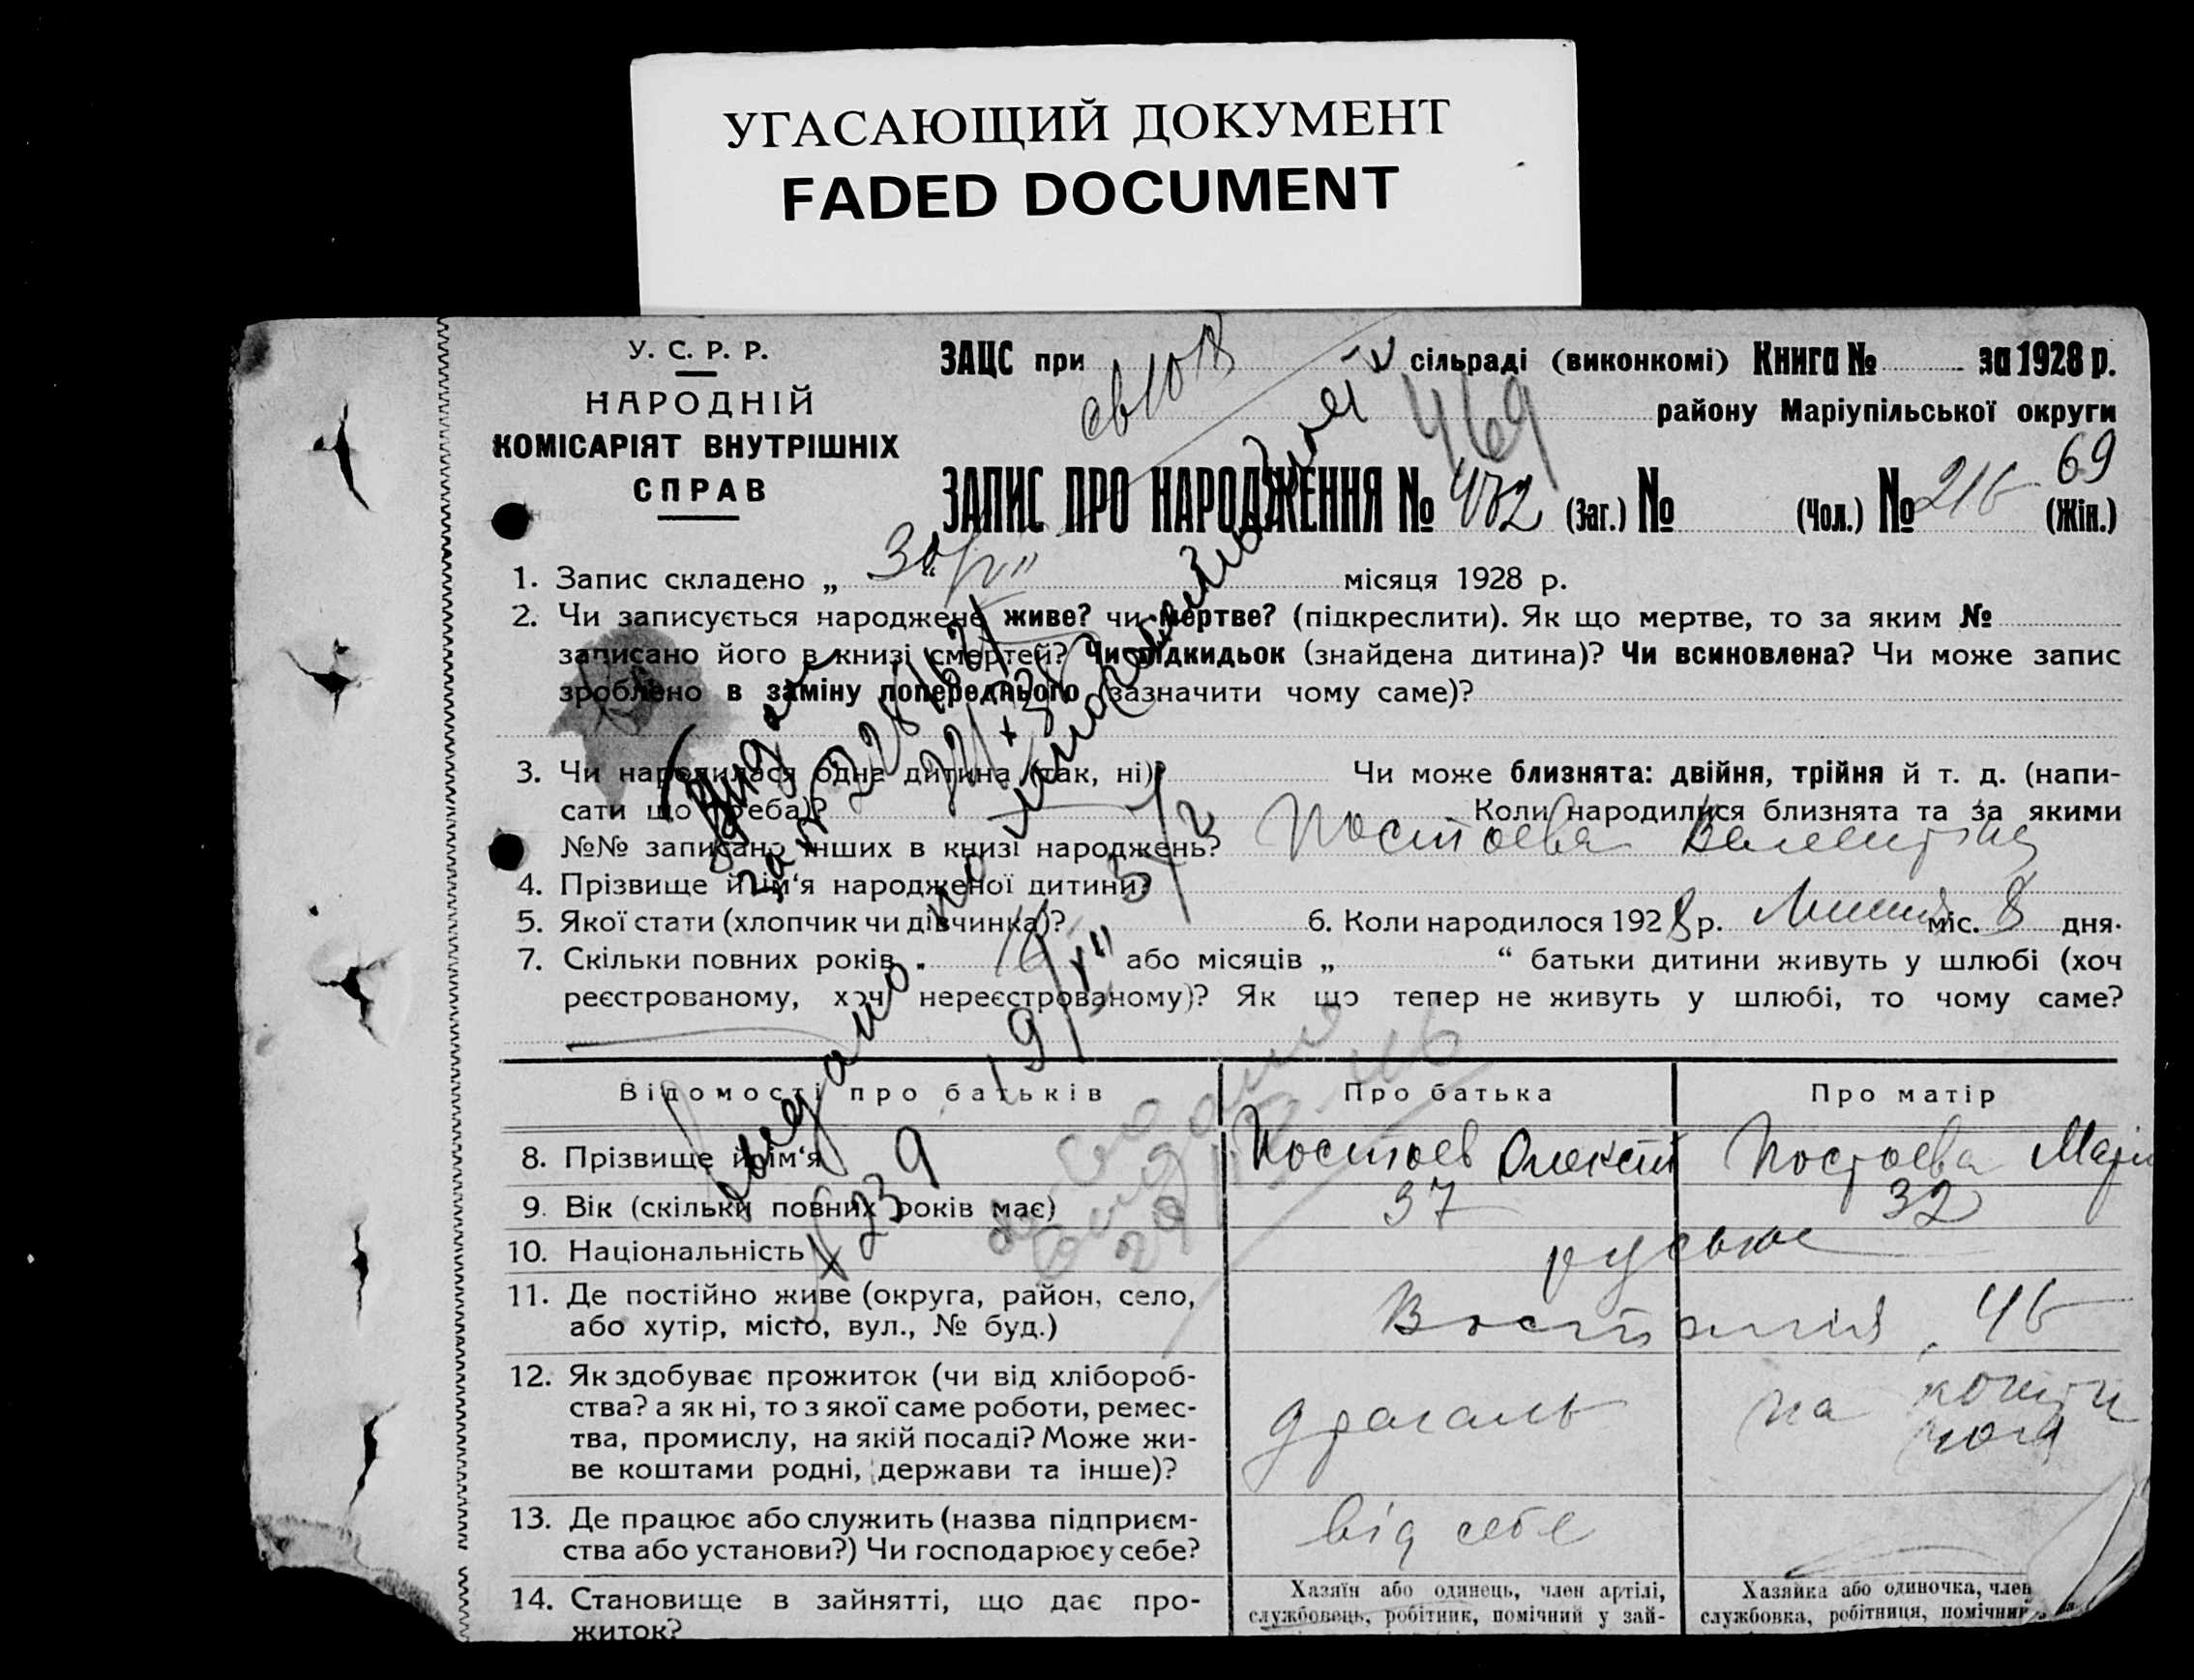 УГАСАЮЩИЙ ДОКУМЕНТ
FADED DOCUMENT
У. С. Р. Р.
НАРОДНІЙ
КОМІСАРІЯТ ВНУТРІШНІХ
СПРАВ
ЗАЦС при сільраді (виконкомі) Книга № за 1928 р.
469 району Маріупільської округи
69
ЗАПИС ПРО НАРОДЖЕННЯ № 472 (Заг.) № (Чол.) № 216 (Жін.)
1. Запис складено „ 30 “ місяця 1928 р.
2. Чи записується народжене живе? чи мертве? (підкреслити). Як що мертве, то за яким №
записано його в книзі смертей? Чи підкидьок (знайдена дитина)? Чи всиновлена? Чи може запис
зроблено в заміну попереднього (зазначити чому саме)?
3. Чи народилася одна дитина (так, ні)? Чи може близнята: двійня, трійня й т. д. (напи-
сати що треба)? Коли народилися близнята та за якими
№№ записано інших в книзі народжень?
Постоева Валентіна
4. Прізвище й ім‘я народженої дитини?
5. Якої стати (хлопчик чи дівчинка)? 6. Коли народилося 1928 р. Липня міс. 8 дня.
7. Скільки повних років „ 16 “ або місяців „ “ батьки дитини живуть у шлюбі (хоч
реєстрованому, хоч нереєстрованому)? Як що тепер не живуть у шлюбі, то чому саме?
Відомості про батьків Про батька Про матір
8. Прізвище й ім‘я Постоев Олексій Постоева Марія
9. Вік (скільки повних років має) 37 32
10. Національність руські
11. Де постійно живе (округа, район, село,
або хутір, місто, вул., № буд.) 46
12. Як здобуває прожиток (чи від хлібороб-
ства? а як ні, то з якої саме роботи, ремес-
тва, промислу, на якій посаді? Може жи-
ве коштами родні, держави та інше)?
драгаль
на кошти
13. Де працює або служить (назва підприєм-
ства або установи?) Чи господарює у себе?
від себе
14. Становище в зайнятті, що дає про-
житок?
Хазяїн або одинець, член артілі,
службовець, робітник, помічний у зай-
Хазяйка або одиночка, член
службовка, робітниця, помічни